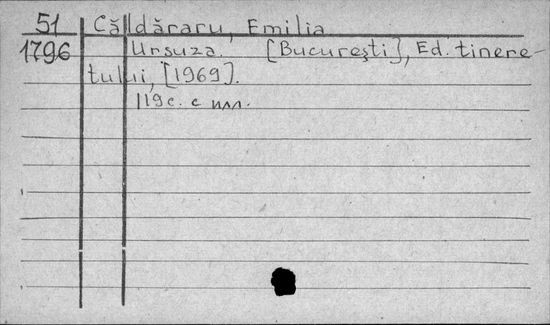 51 Căldăraru, Emilia
1796 Ursuza. [Bucureşti], Ed. tinere-
tului, [1969].
119 с. с илл.